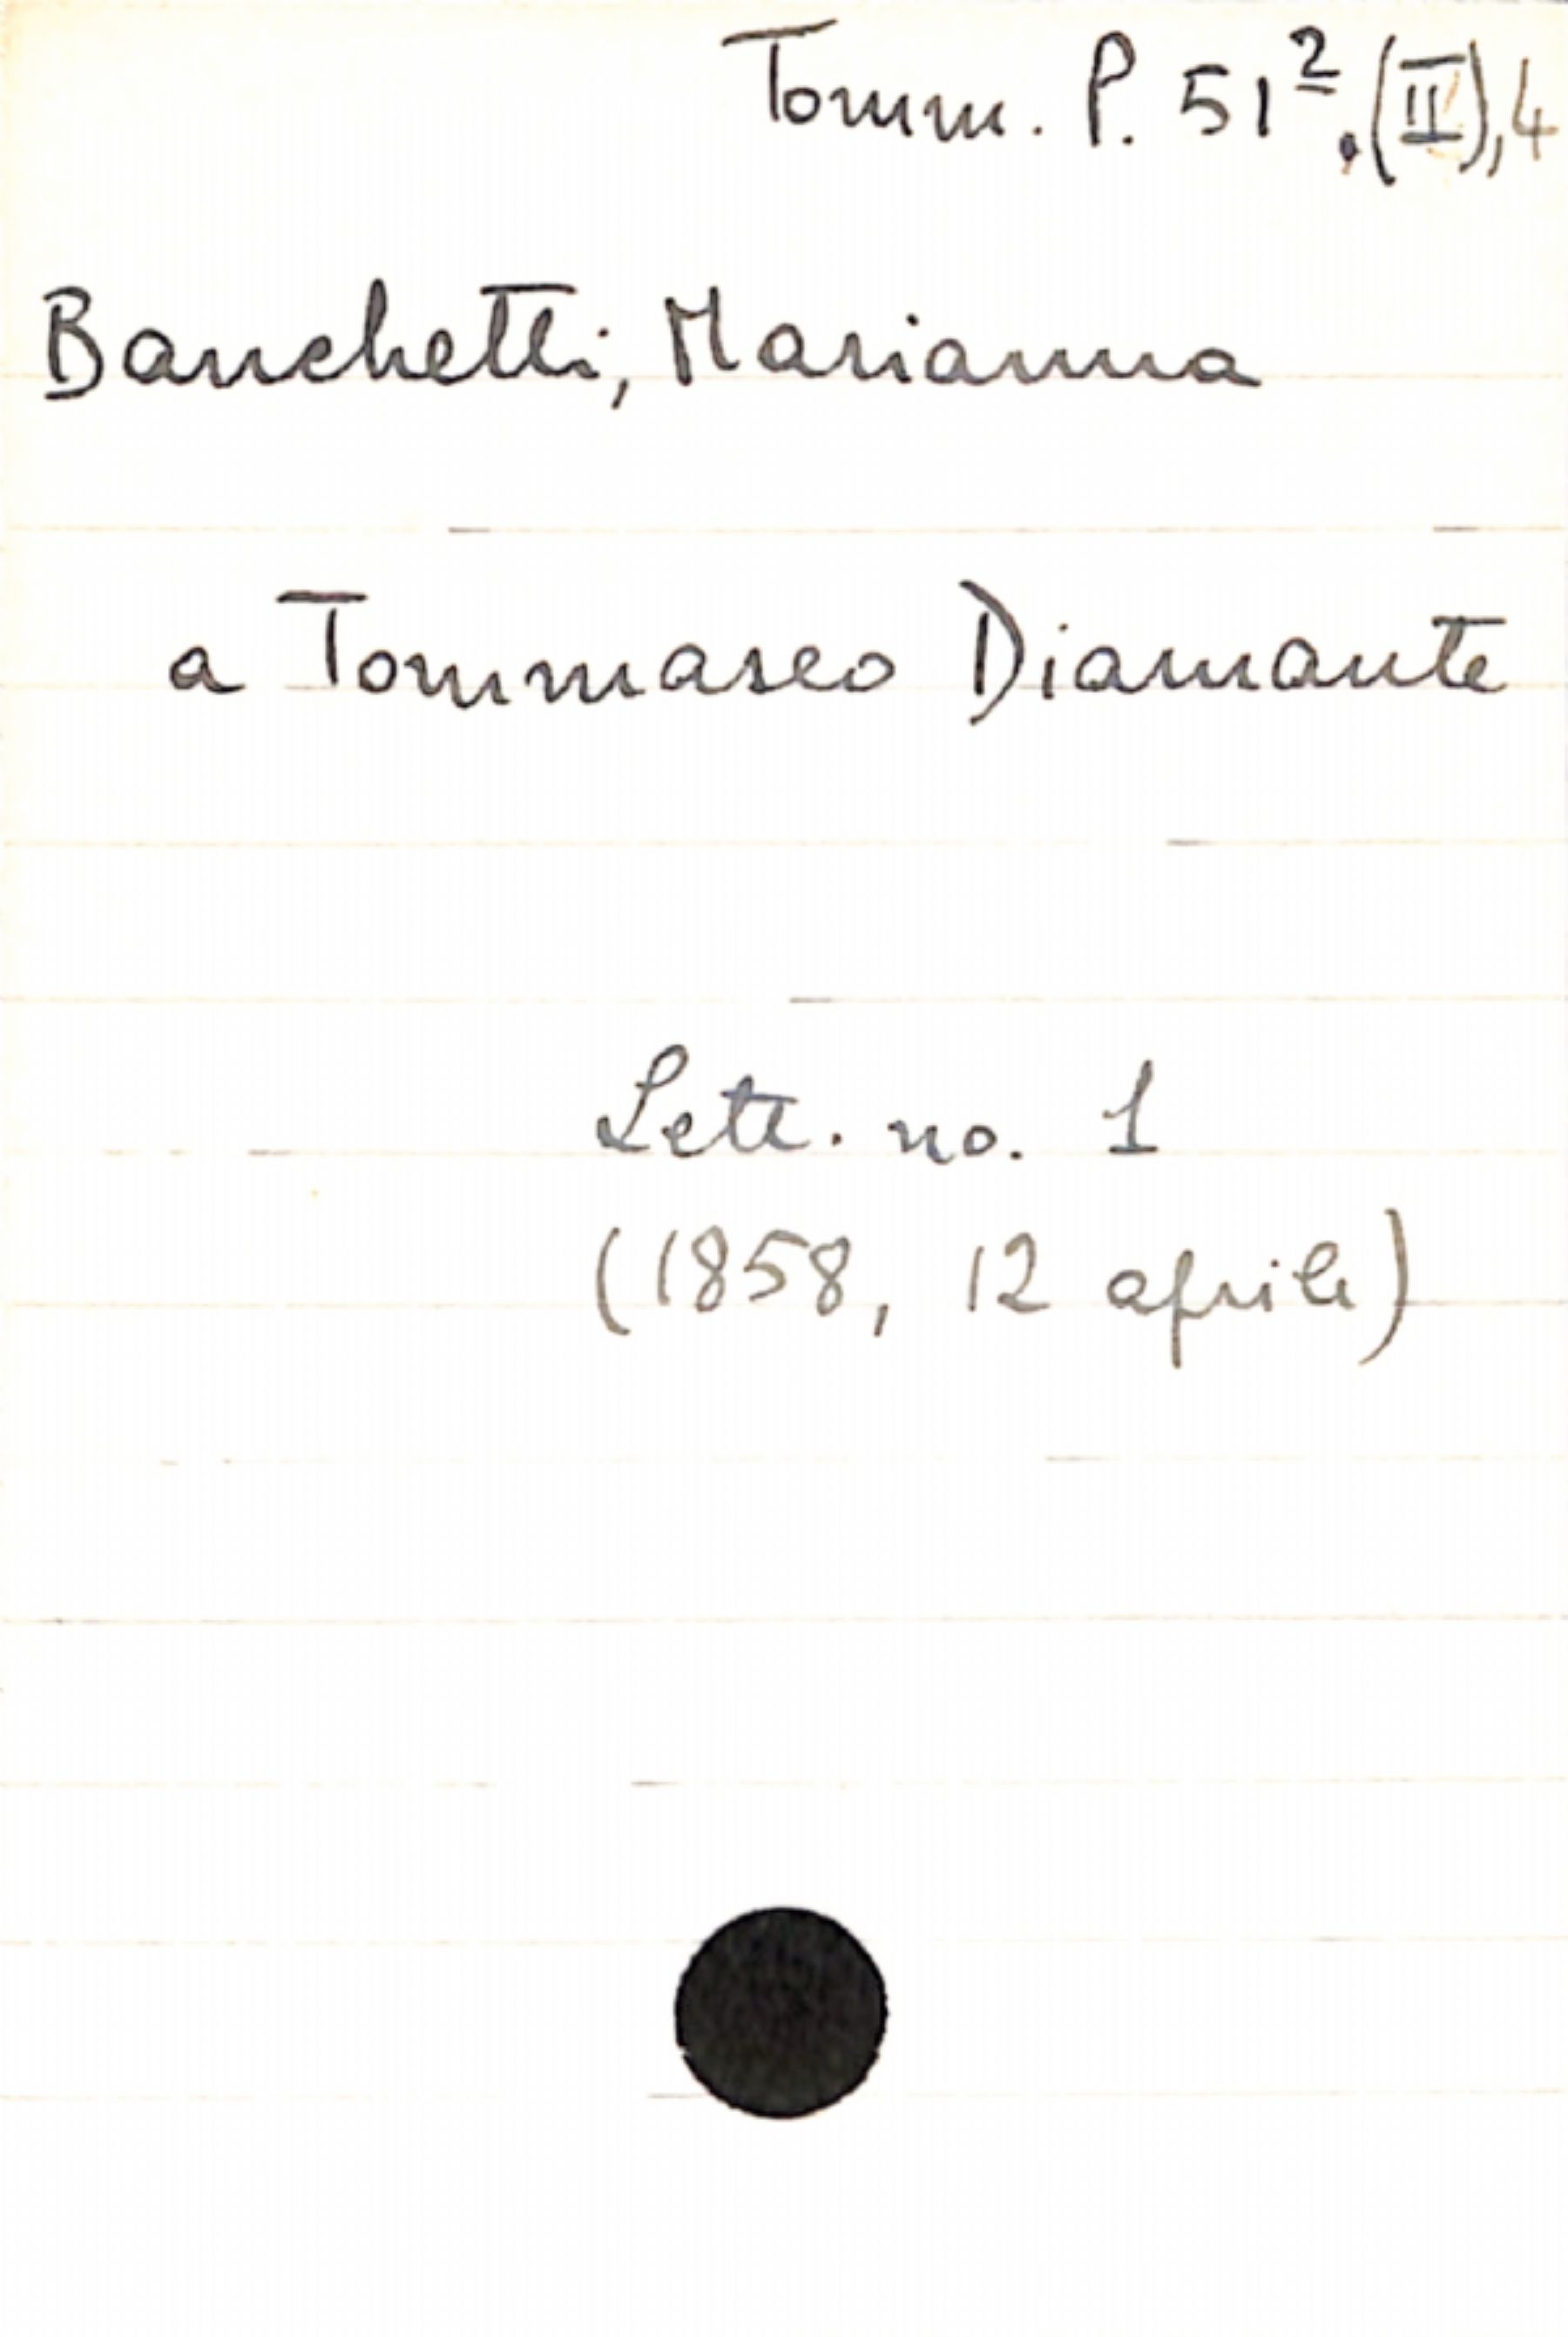 Tomm. P. 51²,(II),4
Banchetti, Marianna
a Tommaseo Diamante
Lett. no. 1
(1858, 12 aprile)